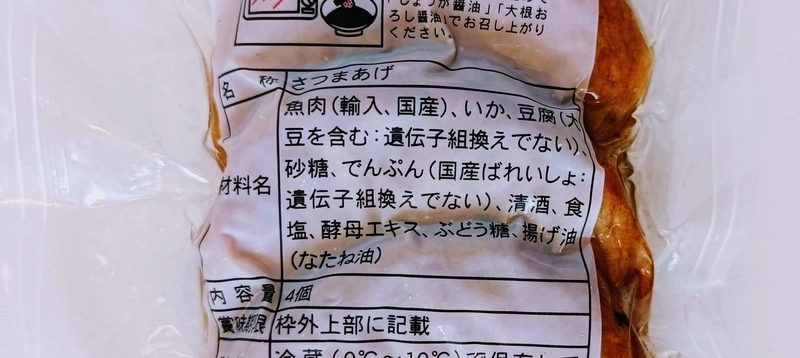 「しょうが醤油」「大根お
ろし醤油」でお召し上がり
ください。
名 称 さつまあげ
魚肉(輸入、国産)、いか、豆腐(大
豆を含む:遺伝子組換えでない)、
材料名 砂糖、でんぷん(国産ばれいしょ:
遺伝子組換えでない)、清酒、食
塩、酵母エキス、ぶどう糖、揚げ油
(なたね油)
内 容 量 4個
賞味期限 枠外上部に記載
冷蔵(0℃~10℃)で保存して